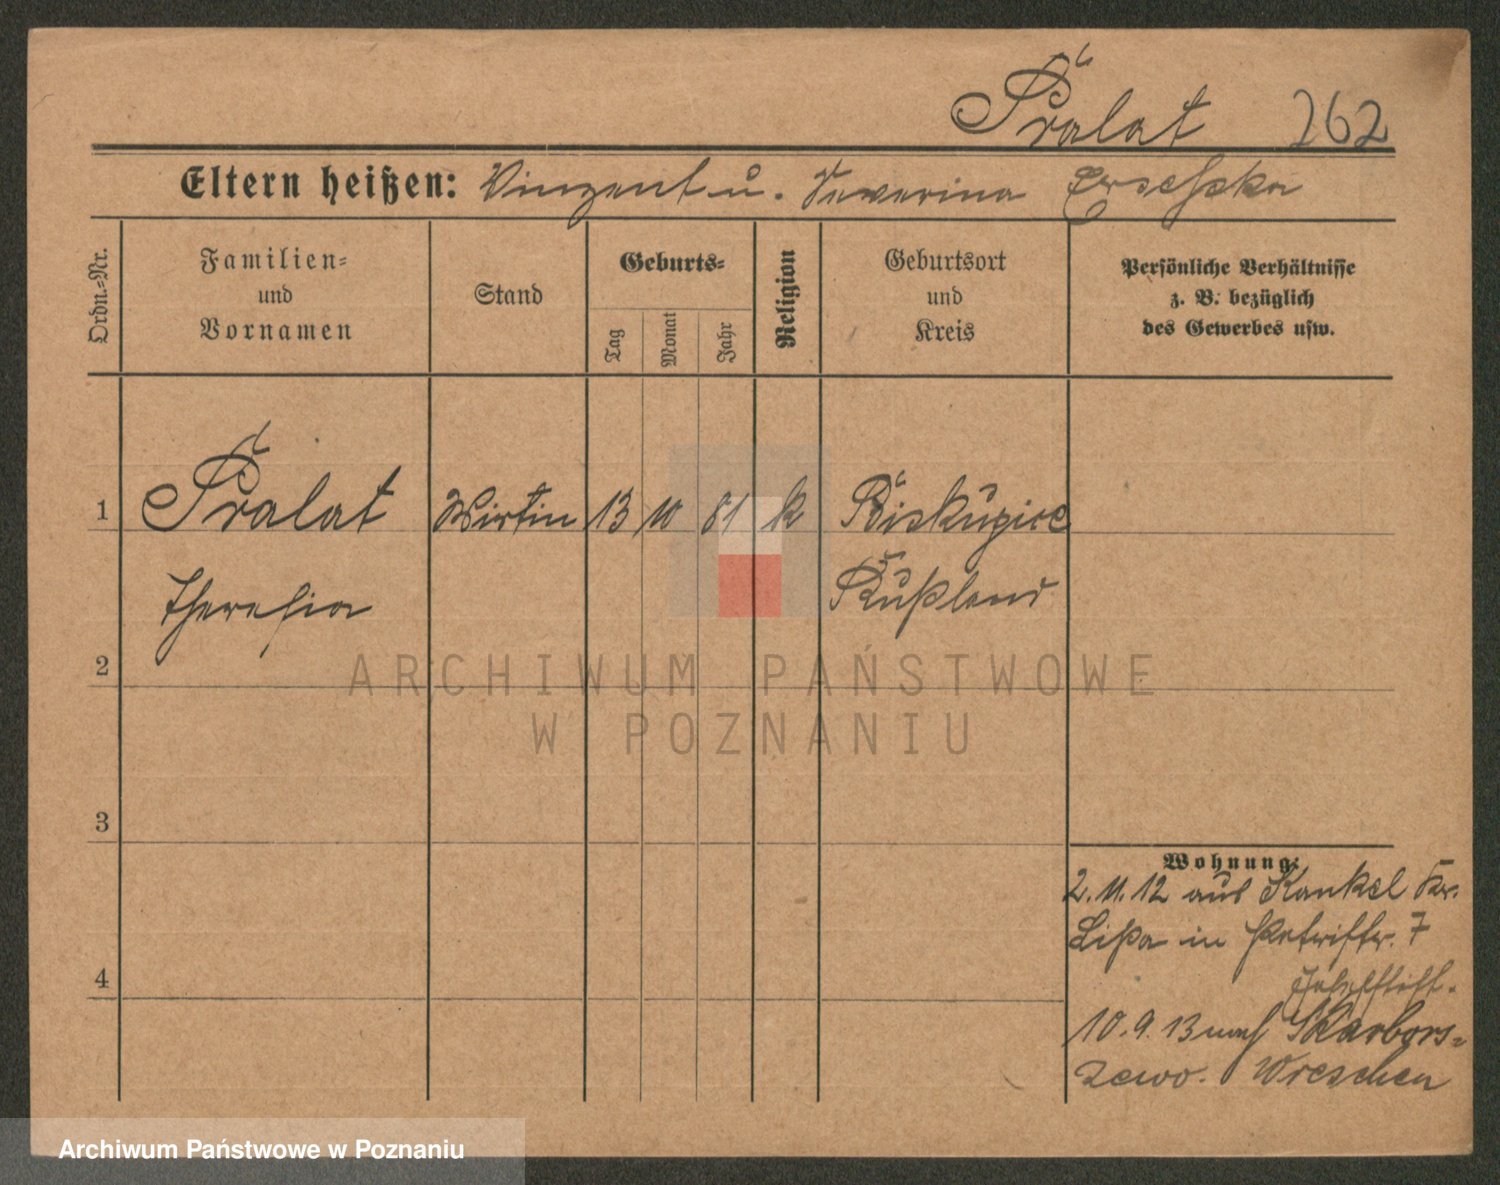 Pralat 262
Eltern heißen: Vinzent u. Severina
Ordn.-Nr.
Familien-
und
Vornamen
Stand
Geburts-
Tag
Monat
Jahr
Religion
Geburtsort
und
Kreis
Persönliche Verhältnisse
z. B. bezüglich
des Gewerbes usw.
1 Pralat Wirtin 13 10 81 k Biskupice
Theresia Rußland
2
3
4
Wohnung:
2. 11. 12 aus Kankel Kr.
Lißa in Petristr. 7
10. 9. 13 nach Skarbors-
zewo. Wreschen
ARCHIWUM PAŃSTWOWE
W POZNANIU
Archiwum Państwowe w Poznaniu